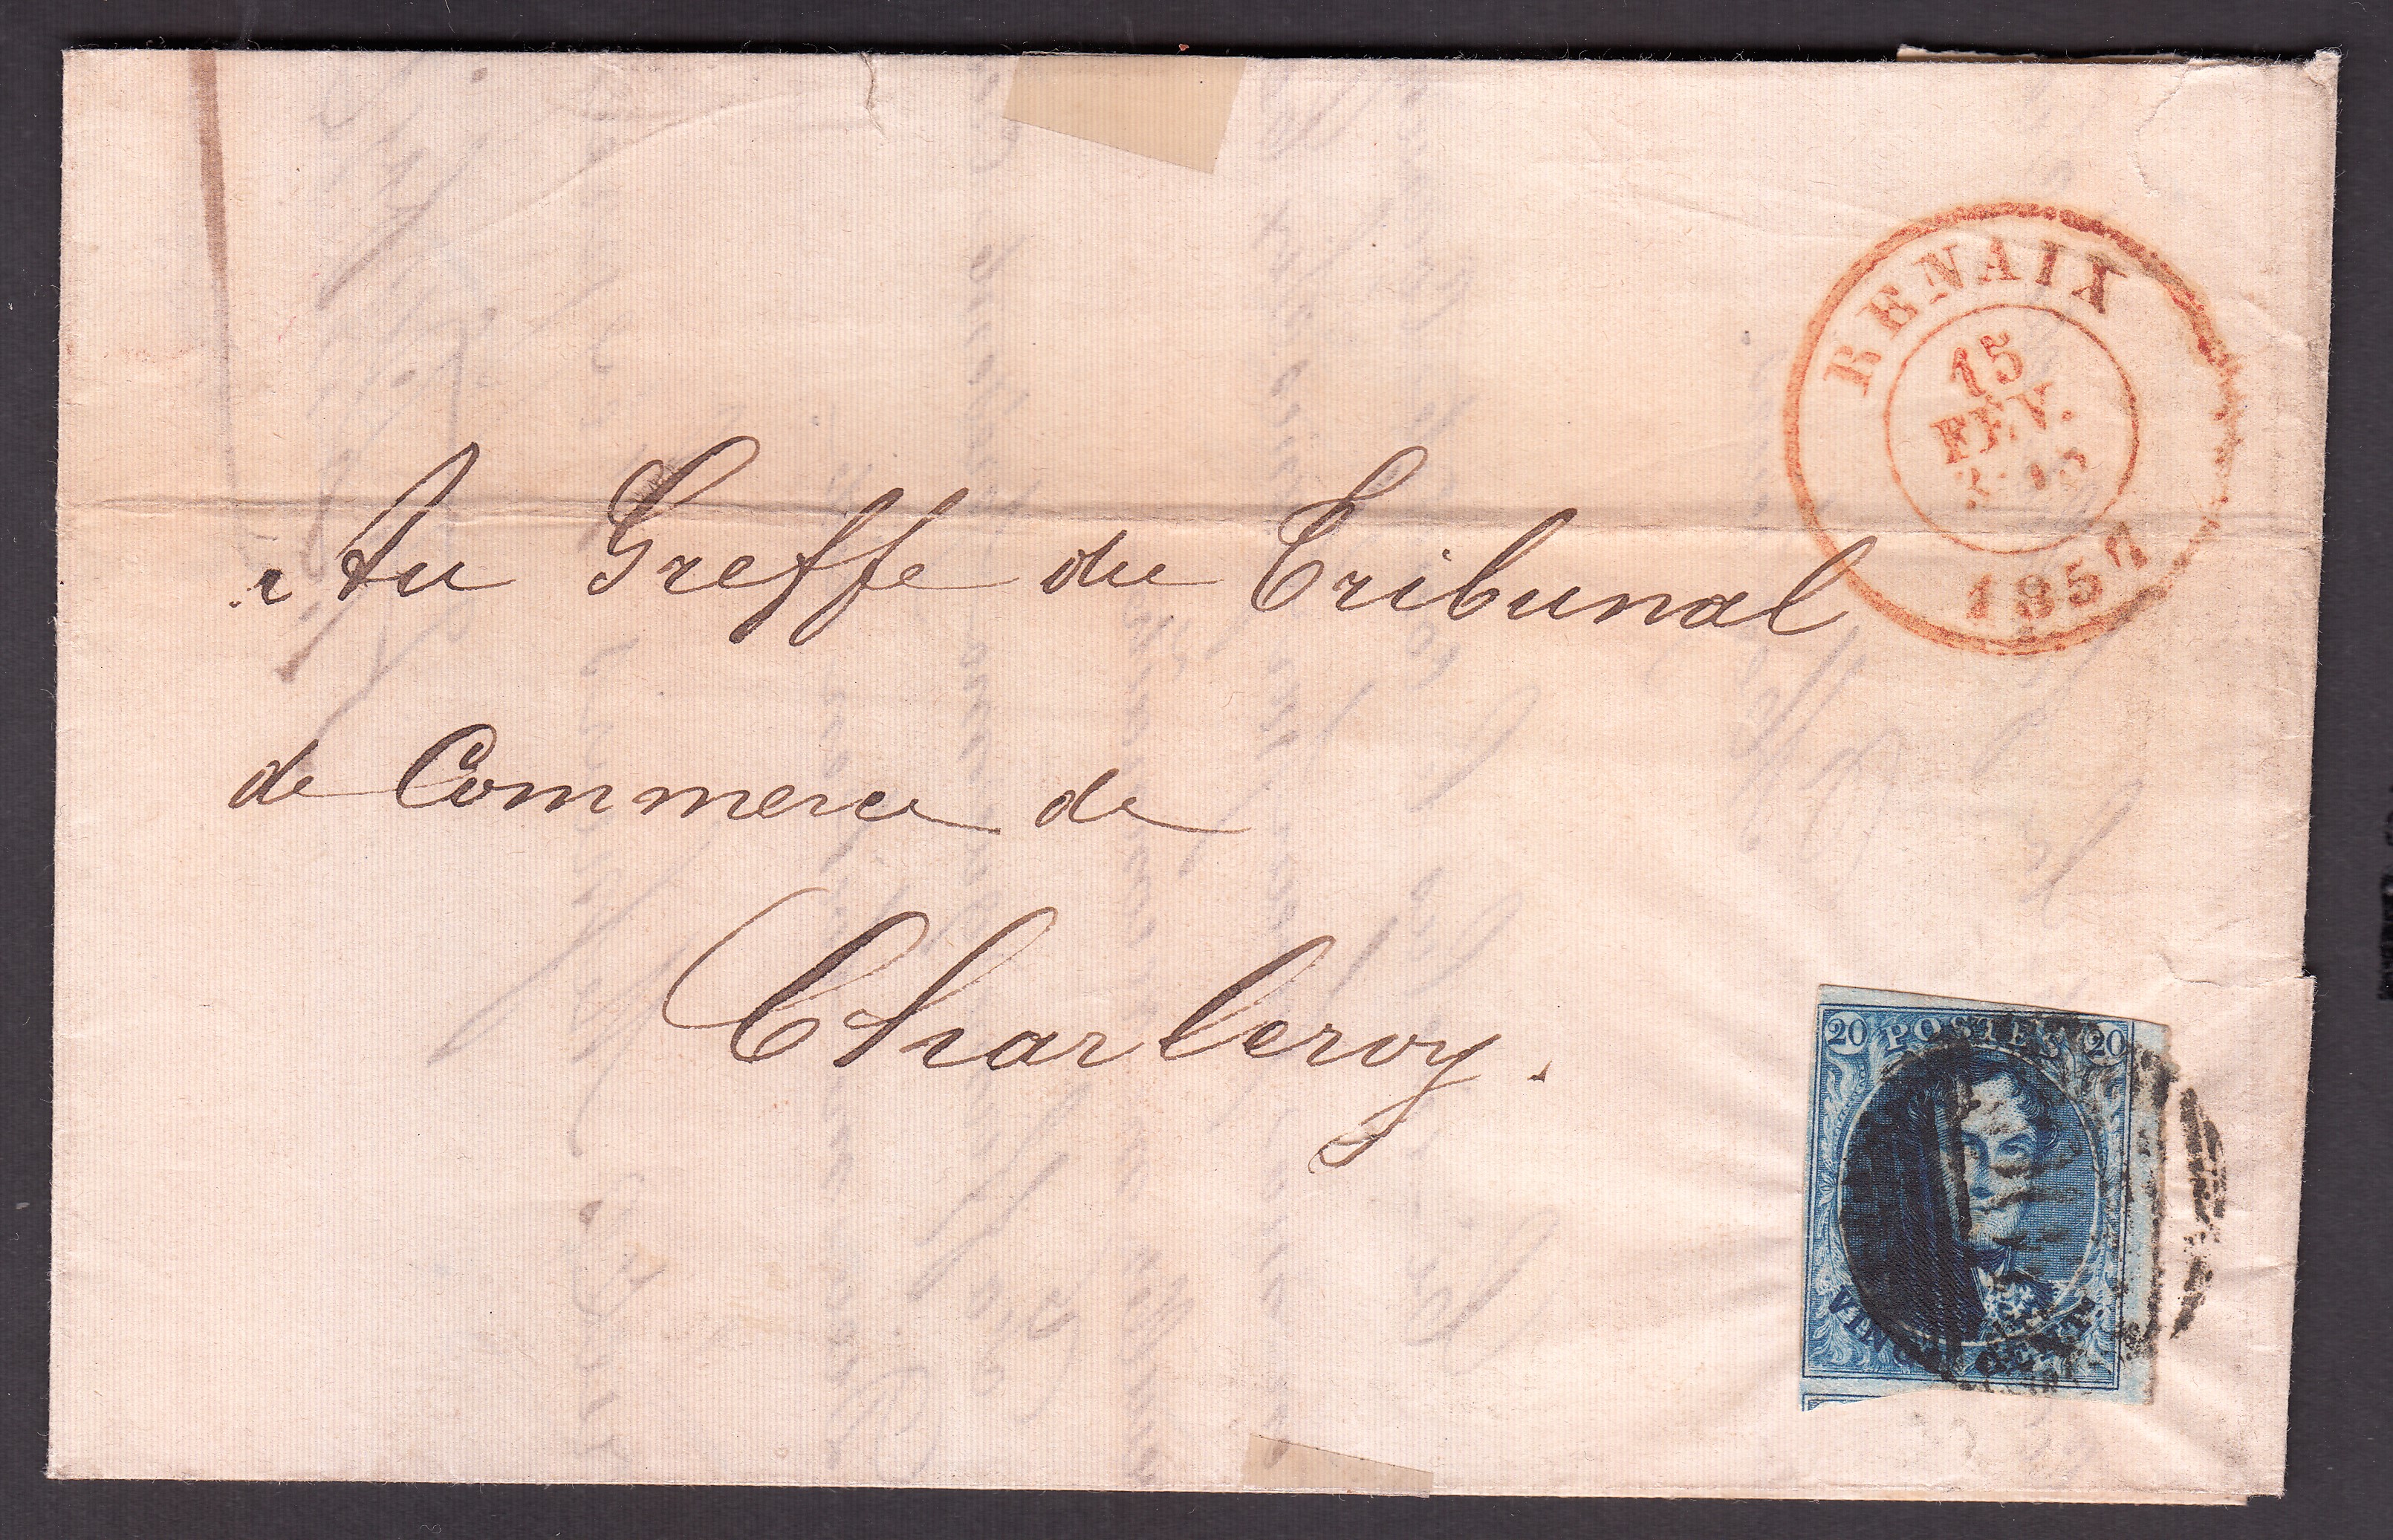 RENAIX
15
FÉV.
1857
Au Greffe du Tribunal
de Commerce de
Charleroy.
20 POSTES 20
VINGT CENTS.